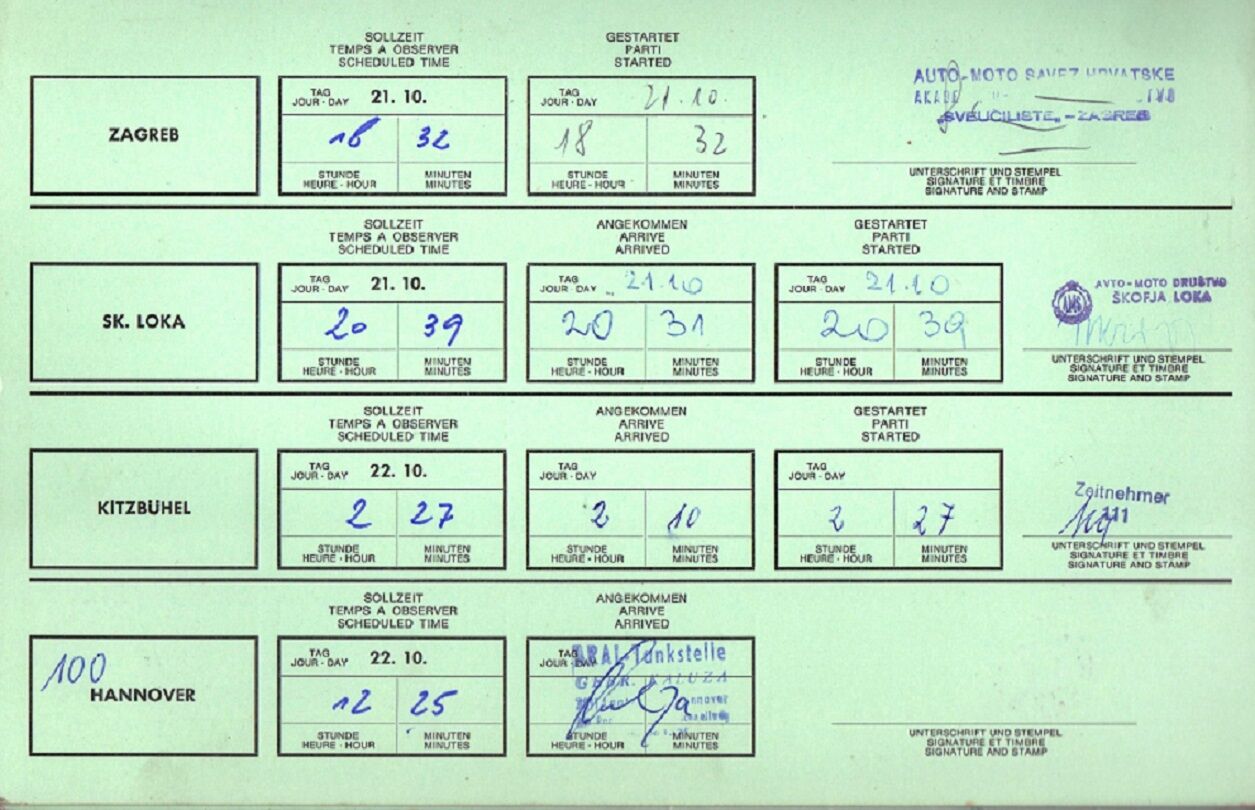 SOLLZEIT
TEMPS A OBSERVER
SCHEDULED TIME
GESTARTET
PARTI
STARTED
ZAGREB
TAG
JOUR - DAY 21. 10.
18 32
STUNDE MINUTEN
HEURE - HOUR MINUTES
TAG
JOUR - DAY 21.10.
18 32
STUNDE MINUTEN
HEURE - HOUR MINUTES
AUTO-MOTO SAVEZ HRVATSKE
„SVEUČILIŠTE„ - ZAGREB
UNTERSCHRIFT UND STEMPEL
SIGNATURE ET TIMBRE
SIGNATURE AND STAMP
SOLLZEIT
TEMPS A OBSERVER
SCHEDULED TIME
ANGEKOMMEN
ARRIVE
ARRIVED
GESTARTET
PARTI
STARTED
SK. LOKA
TAG
JOUR - DAY 21. 10.
20 39
STUNDE MINUTEN
HEURE - HOUR MINUTES
TAG
JOUR - DAY 21.10
20 31
STUNDE MINUTEN
HEURE - HOUR MINUTES
TAG
JOUR - DAY 21.10
20 39
STUNDE MINUTEN
HEURE - HOUR MINUTES
AVTO-MOTO DRUŠTVO
ŠKOFJA LOKA
AMS
UNTERSCHRIFT UND STEMPEL
SIGNATURE ET TIMBRE
SIGNATURE AND STAMP
SOLLZEIT
TEMPS A OBSERVER
SCHEDULED TIME
ANGEKOMMEN
ARRIVE
ARRIVED
GESTARTET
PARTI
STARTED
KITZBÜHEL
TAG
JOUR - DAY 22. 10.
2 27
STUNDE MINUTEN
HEURE - HOUR MINUTES
TAG
JOUR - DAY
2 10
STUNDE MINUTEN
HEURE - HOUR MINUTES
TAG
JOUR - DAY
2 27
STUNDE MINUTEN
HEURE - HOUR MINUTES
Zeitnehmer
111
UNTERSCHRIFT UND STEMPEL
SIGNATURE ET TIMBRE
SIGNATURE AND STAMP
SOLLZEIT
TEMPS A OBSERVER
SCHEDULED TIME
ANGEKOMMEN
ARRIVE
ARRIVED
100
HANNOVER
TAG
JOUR - DAY 22. 10.
12 25
STUNDE MINUTEN
HEURE - HOUR MINUTES
TAG
JOUR - DAY
ARAL-Tankstelle
GEBR. KALUZA
STUNDE MINUTEN
HEURE - HOUR MINUTES
UNTERSCHRIFT UND STEMPEL
SIGNATURE ET TIMBRE
SIGNATURE AND STAMP